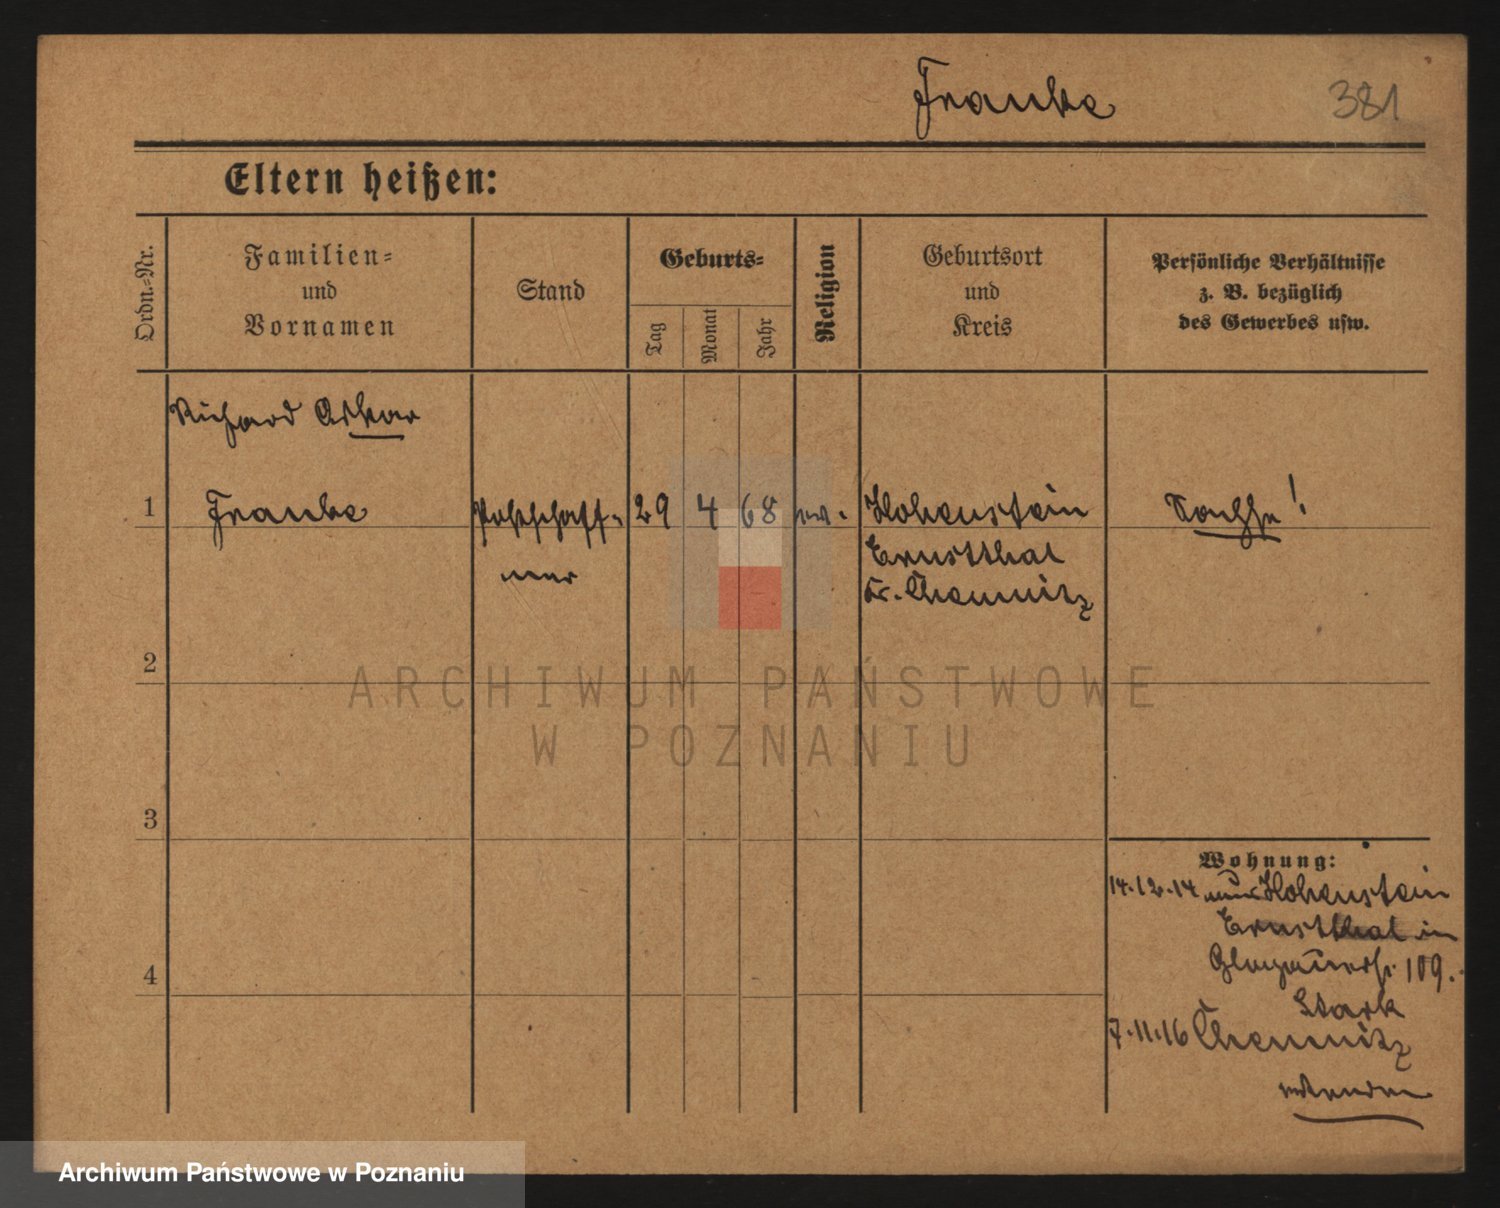 Franke 381
Eltern heißen:
Ordn.=Nr.
Familien=
und
Vornamen
Stand
Geburts=
Tag
Monat
Jahr
Religion
Geburtsort
und
Kreis
Persönliche Verhältnisse
z. B. bezüglich
des Gewerbes usw.
Richard Oskar
1 Franke Postschaff- 29 4 68 ev. Hohenstein Sachse!
ner Ernstthal
Kr. Chemnitz
2
ARCHIWUM PAŃSTWOWE
W POZNANIU
3
Wohnung:
14.12.14 Hohenstein
Ernstthal in
109.
7.11.16 Chemnitz
4
Archiwum Państwowe w Poznaniu